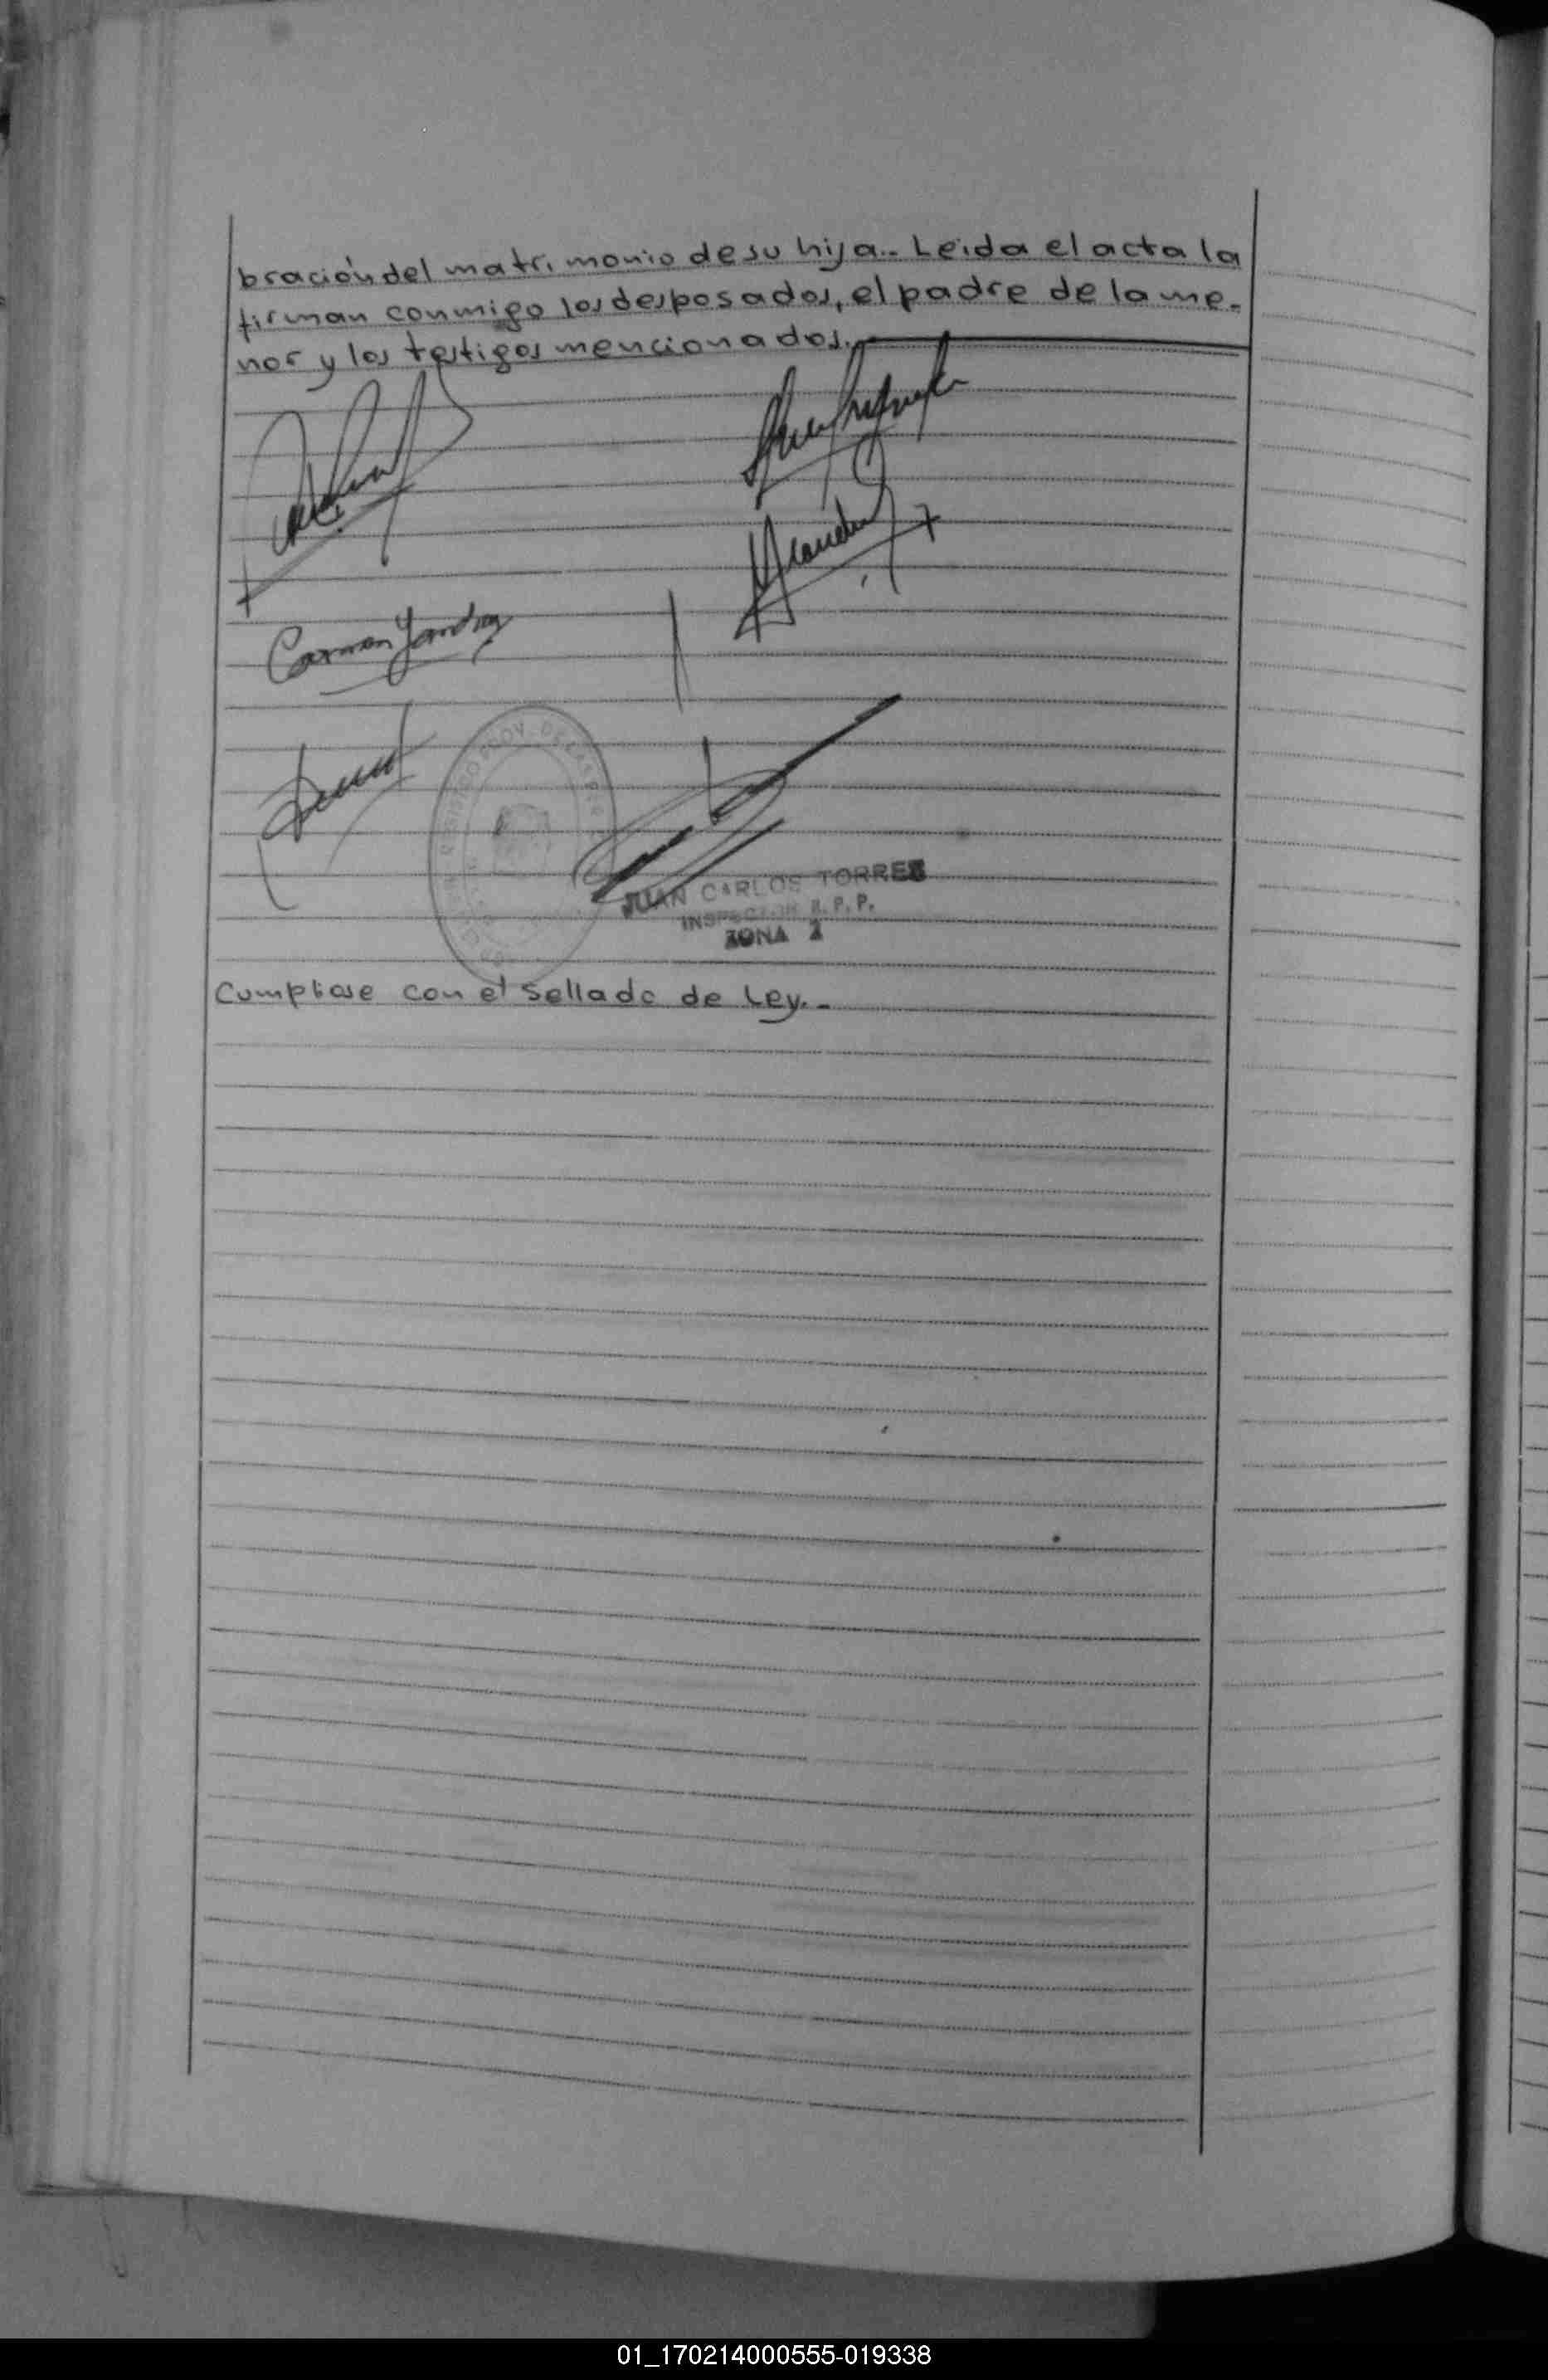 bración del matrimonio de su hija.- Leida el acta la
firman conmigo los desposados, el padre de la me-
nor y los testigos mencionados.
Carmen
JUAN CARLOS TORRES
INSPECTOR R.P.P.
ZONA
Cumpliose con el sellado de Ley.-
01_170214000555-019338